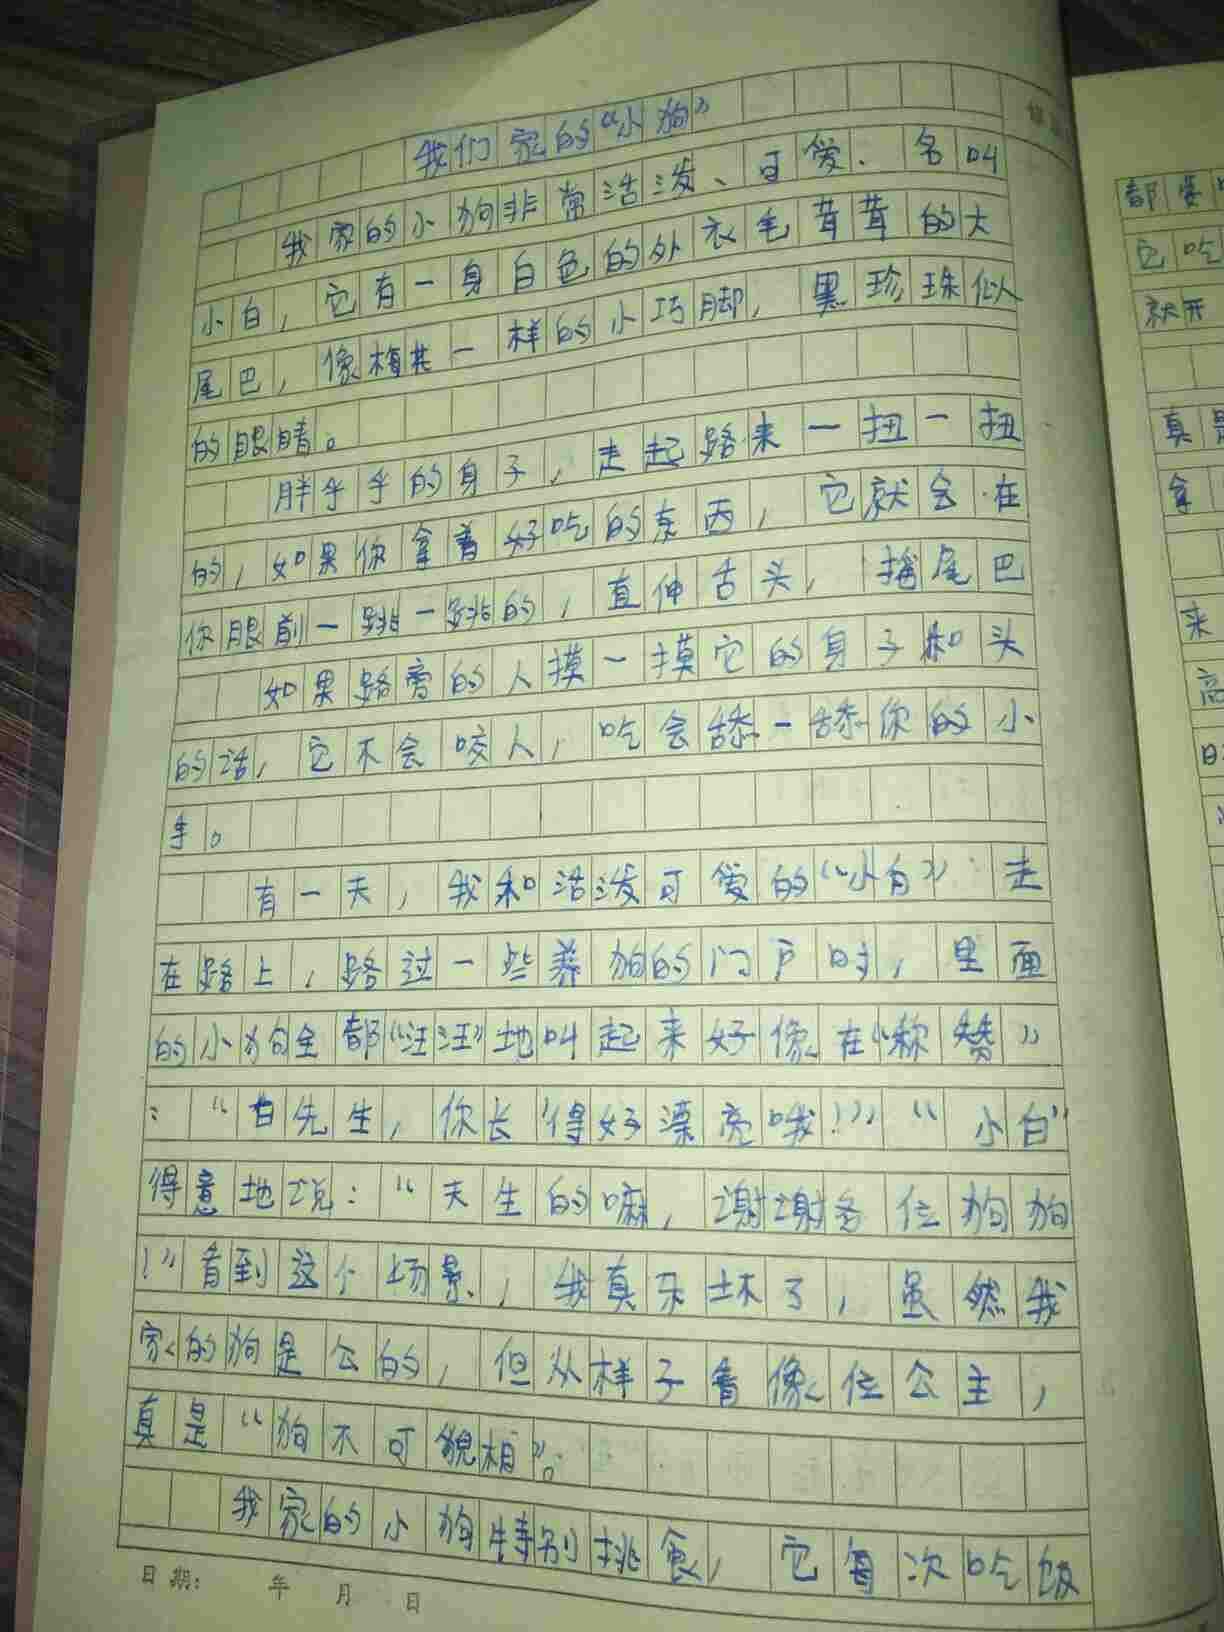 我们家的“小狗”
我家的小狗非常活泼、可爱.名叫
小白,它有一身白色的外衣毛茸茸的大
尾巴,像梅花一样的小巧脚,黑珍珠似
的眼睛。
胖乎乎的身子,走起路来一扭一扭
的,如果你拿着好吃的东西,它就会在
你眼前一跳一跳的,直伸舌头,摇尾巴
如果路旁的人摸一摸它的身子和头
的话,它不会咬人,吃会舔一舔你的小
手。
有一天,我和活泼可爱的“小白”走
在路上,路过一些养狗的门户时,里面
的小狗全都“汪汪”地叫起来好像在“称赞”
:“白先生,你长得好漂亮哦!”“小白”
得意地说:“天生的嘛,谢谢各位狗狗
!”看到这个场景,我真乐坏了,虽然我
家的狗是公的,但从样子看像位公主,
真是“狗不可貌相”。
我家的小狗特别挑食,它每次吃饭
日期: 年 月 日
都要
它吃
就开
真是
拿
来
高